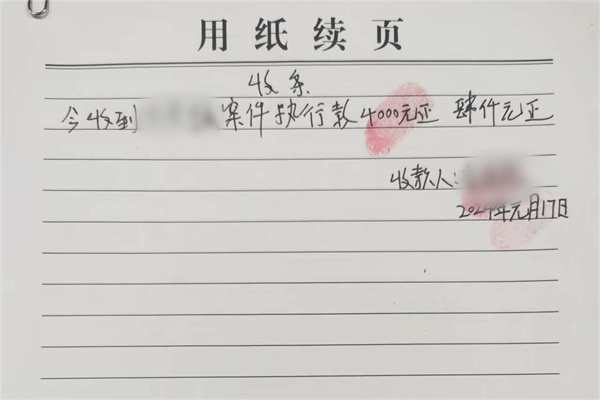 用纸续页
收条
今收到 案件执行款4000元正 肆仟元正
收款人:
2024年元月17日